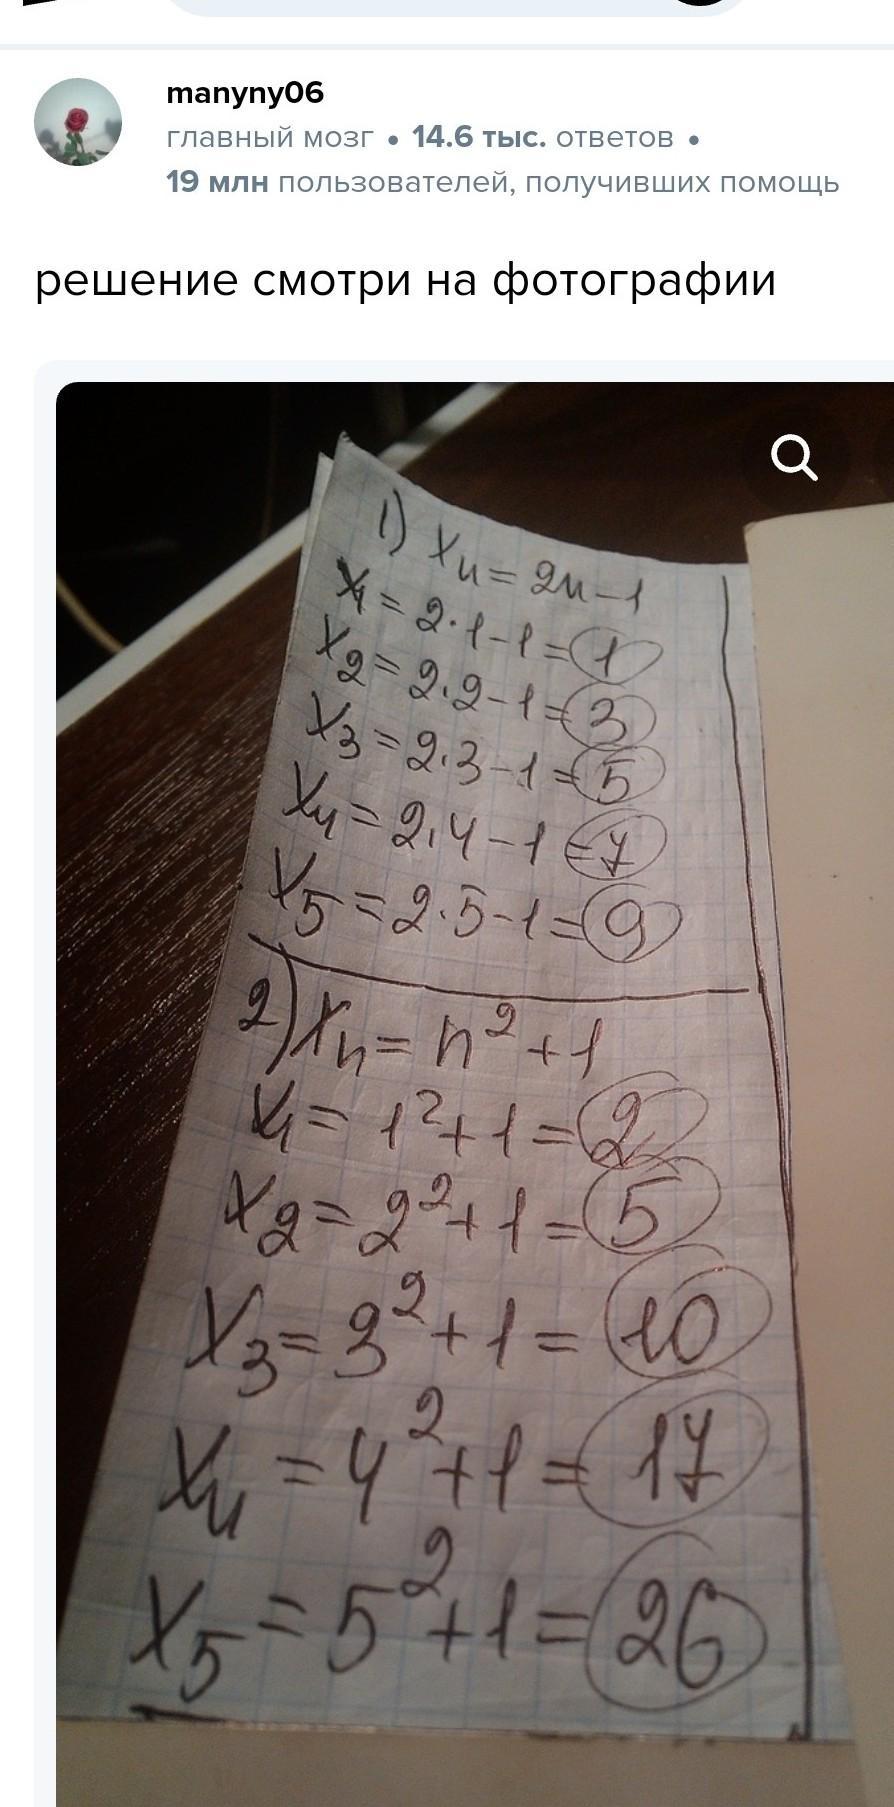 manyny06
главный мозг • 14.6 тыс. ответов •
19 млн пользователей, получивших помощь
решение смотри на фотографии
1) xn = 2n-1
x1 = 2·1-1=1
x2 = 2·2-1=3
x3 = 2·3-1=5
x4 = 2·4-1=7
x5 = 2·5-1=9
2) xn = n²+1
x1 = 1²+1=2
x2 = 2²+1=5
x3 = 3²+1=10
x4 = 4²+1=17
x5 = 5²+1=26